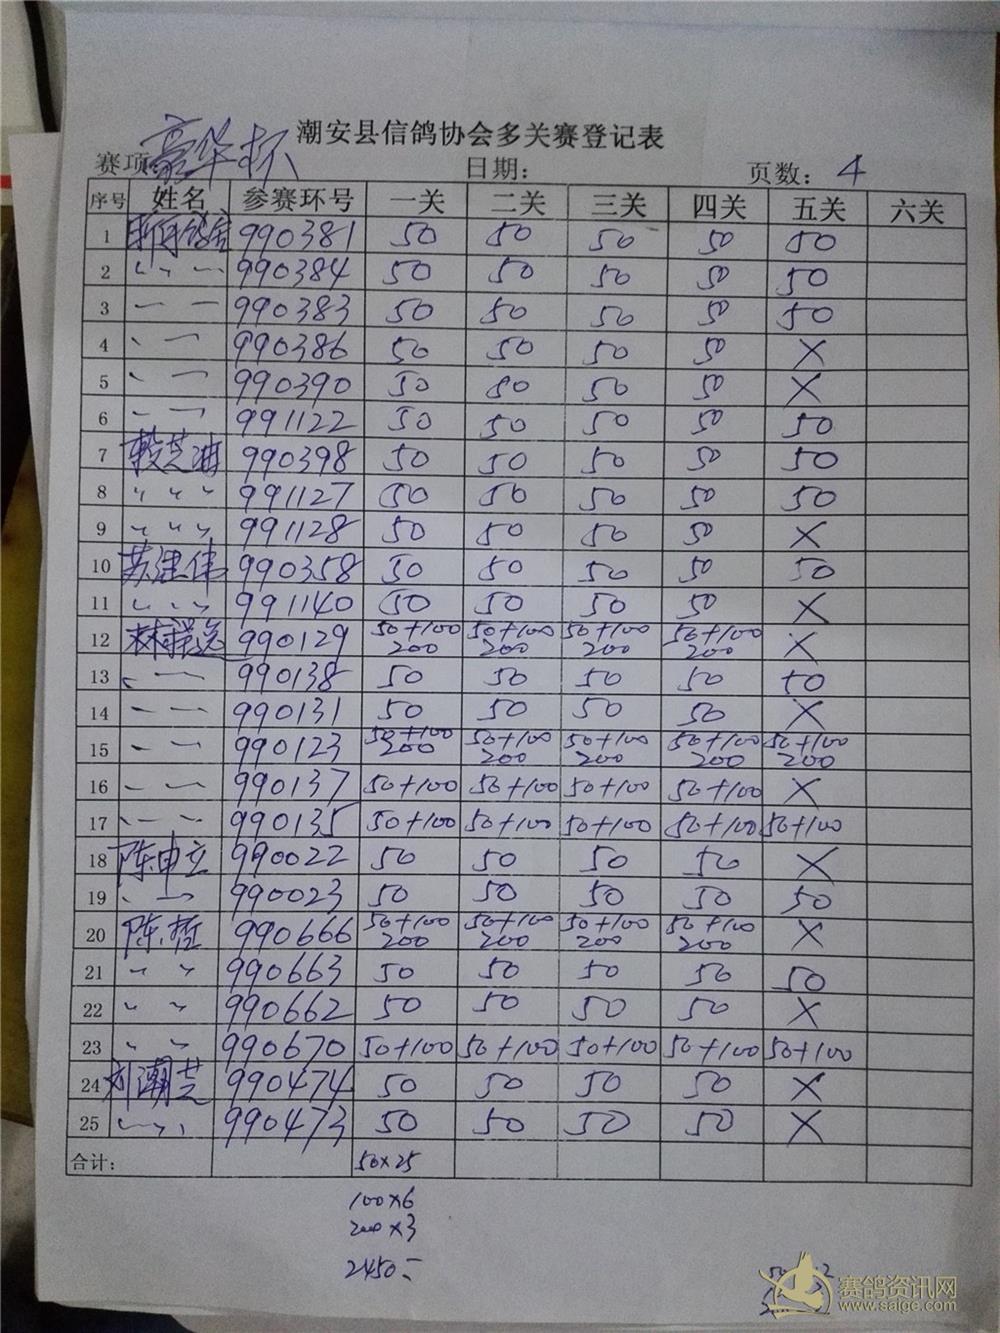 潮安县信鸽协会多关赛登记表
赛项 豪华杯 日期： 页数：4
序号 姓名 参赛环号 一关 二关 三关 四关 五关 六关
1 990381 50 50 50 50 50
2 〃 〃 〃 990384 50 50 50 50 50
3 一 一 990383 50 50 50 50 50
4 、 一 990386 50 50 50 50 X
5 、 一 990390 50 80 50 50 X
6 一 一 991122 50 50 50 50 50
7 990398 50 50 50 50 50
8 〃 〃 〃 991127 50 50 50 50 50
9 〃 〃 〃 991128 50 50 50 50 X
10 苏建伟 990358 50 50 50 50 50
11 〃 〃 〃 991140 50 50 50 50 X
12 990129 50+100 200 50+100 200 50+100 200 50+100 200 X
13 、 一 990138 50 50 50 50 50
14 一 一 990131 50 50 50 50 X
15 一 一 990123 50+100 200 50+100 200 50+100 200 50+100 200 50+100 200
16 一 一 990137 50+100 50+100 50+100 50+100 X
17 、 一 990135 50+100 50+100 50+100 50+100 50+100
18 陈申立 990022 50 50 50 50 X
19 、 一 990023 50 50 50 50 50
20 陈哲 990666 50+100 200 50+100 200 50+100 200 50+100 200 X
21 〃 〃 990663 50 50 50 50 50
22 〃 〃 990662 50 50 50 50 X
23 〃 〃 990670 50+100 50+100 50+100 50+100 50+100
24 刘潮芝 990474 50 50 50 50 X
25 〃 〃 〃 990473 50 50 50 50 X
合计： 50×25
100×6
200×3
2450
赛鸽资讯网
www.saige.com